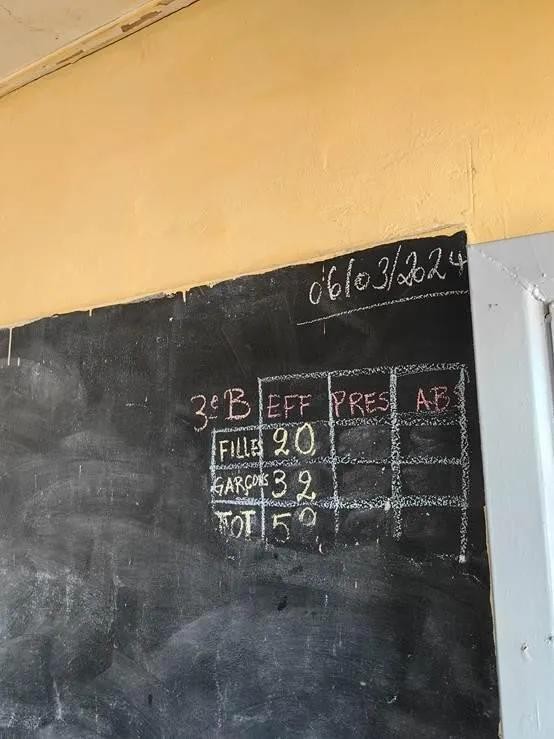 06/03/2024
3e B EFF PRES AB
FILLES 20
GARÇONS 32
TOT